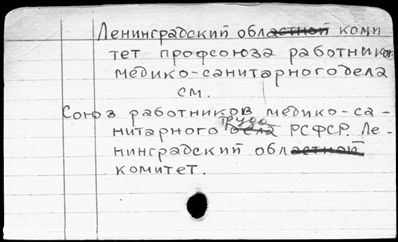 Ленинградский областной коми
тет профсоюза работников
медико-санитарного дела
см.
Союз работников медико-са-
труда
нитарного дела РСФСР. Ле-
нинградский областной
комитет.